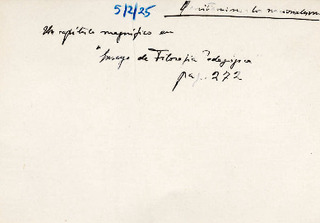 5/2/25
Un capítulo magnífico en
"Ensayo de Filosofía Pedagógica
pag. 272